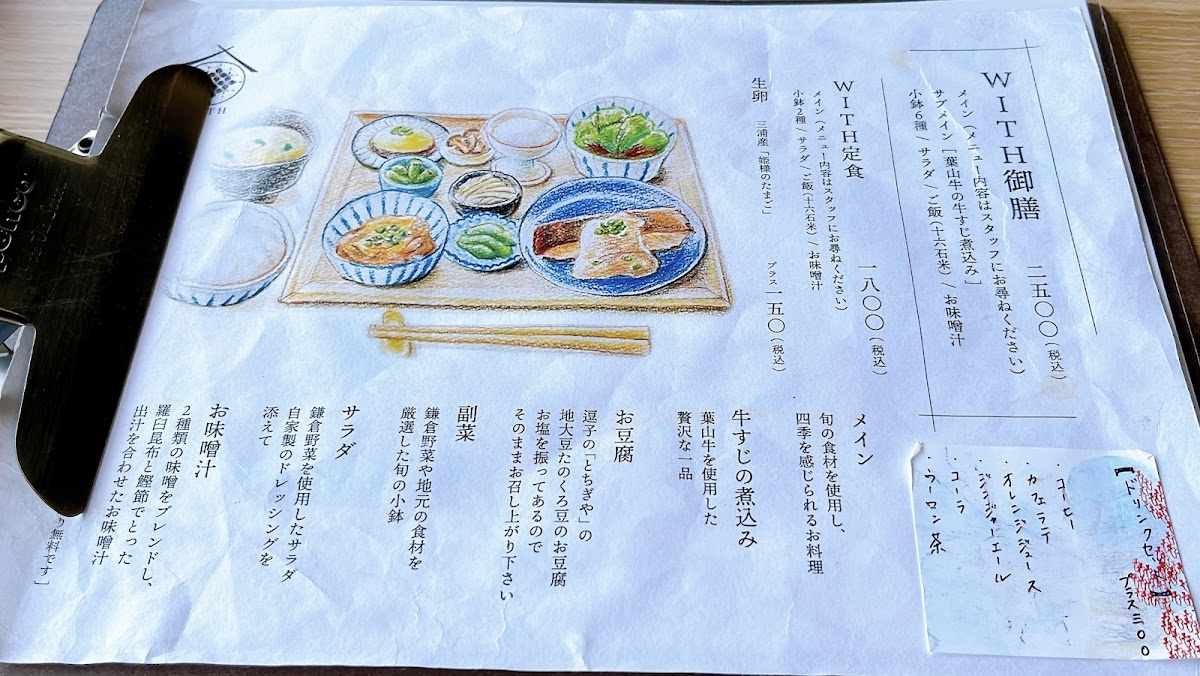 WITH御膳 二五〇〇(税込)
メイン(メニュー内容はスタッフにお尋ねください)
サブメイン「葉山牛の牛すじ煮込み」
小鉢6種/サラダ/ご飯(十六石米)/お味噌汁
WITH定食 一八〇〇(税込)
メイン(メニュー内容はスタッフにお尋ねください)
小鉢2種/サラダ/ご飯(十六石米)/お味噌汁
生卵 三浦産「姫様のたまご」 プラス一五〇(税込)
メイン
旬の食材を使用し、
四季を感じられるお料理
牛すじの煮込み
葉山牛を使用した
贅沢な一品
お豆腐
逗子の「とちぎや」の
地大豆たのくろ豆のお豆腐
お塩を振ってあるので
そのままお召し上がり下さい
副菜
鎌倉野菜や地元の食材を
厳選した旬の小鉢
サラダ
鎌倉野菜を使用したサラダ
自家製のドレッシングを
添えて
お味噌汁
2種類の味噌をブレンドし、
羅臼昆布と鰹節でとった
出汁を合わせたお味噌汁
り無料です」
【ドリンクセット】 プラス三〇〇
・コーヒー
・カフェラテ
・オレンジジュース
・ジンジャーエール
・コーラ
・ウーロン茶